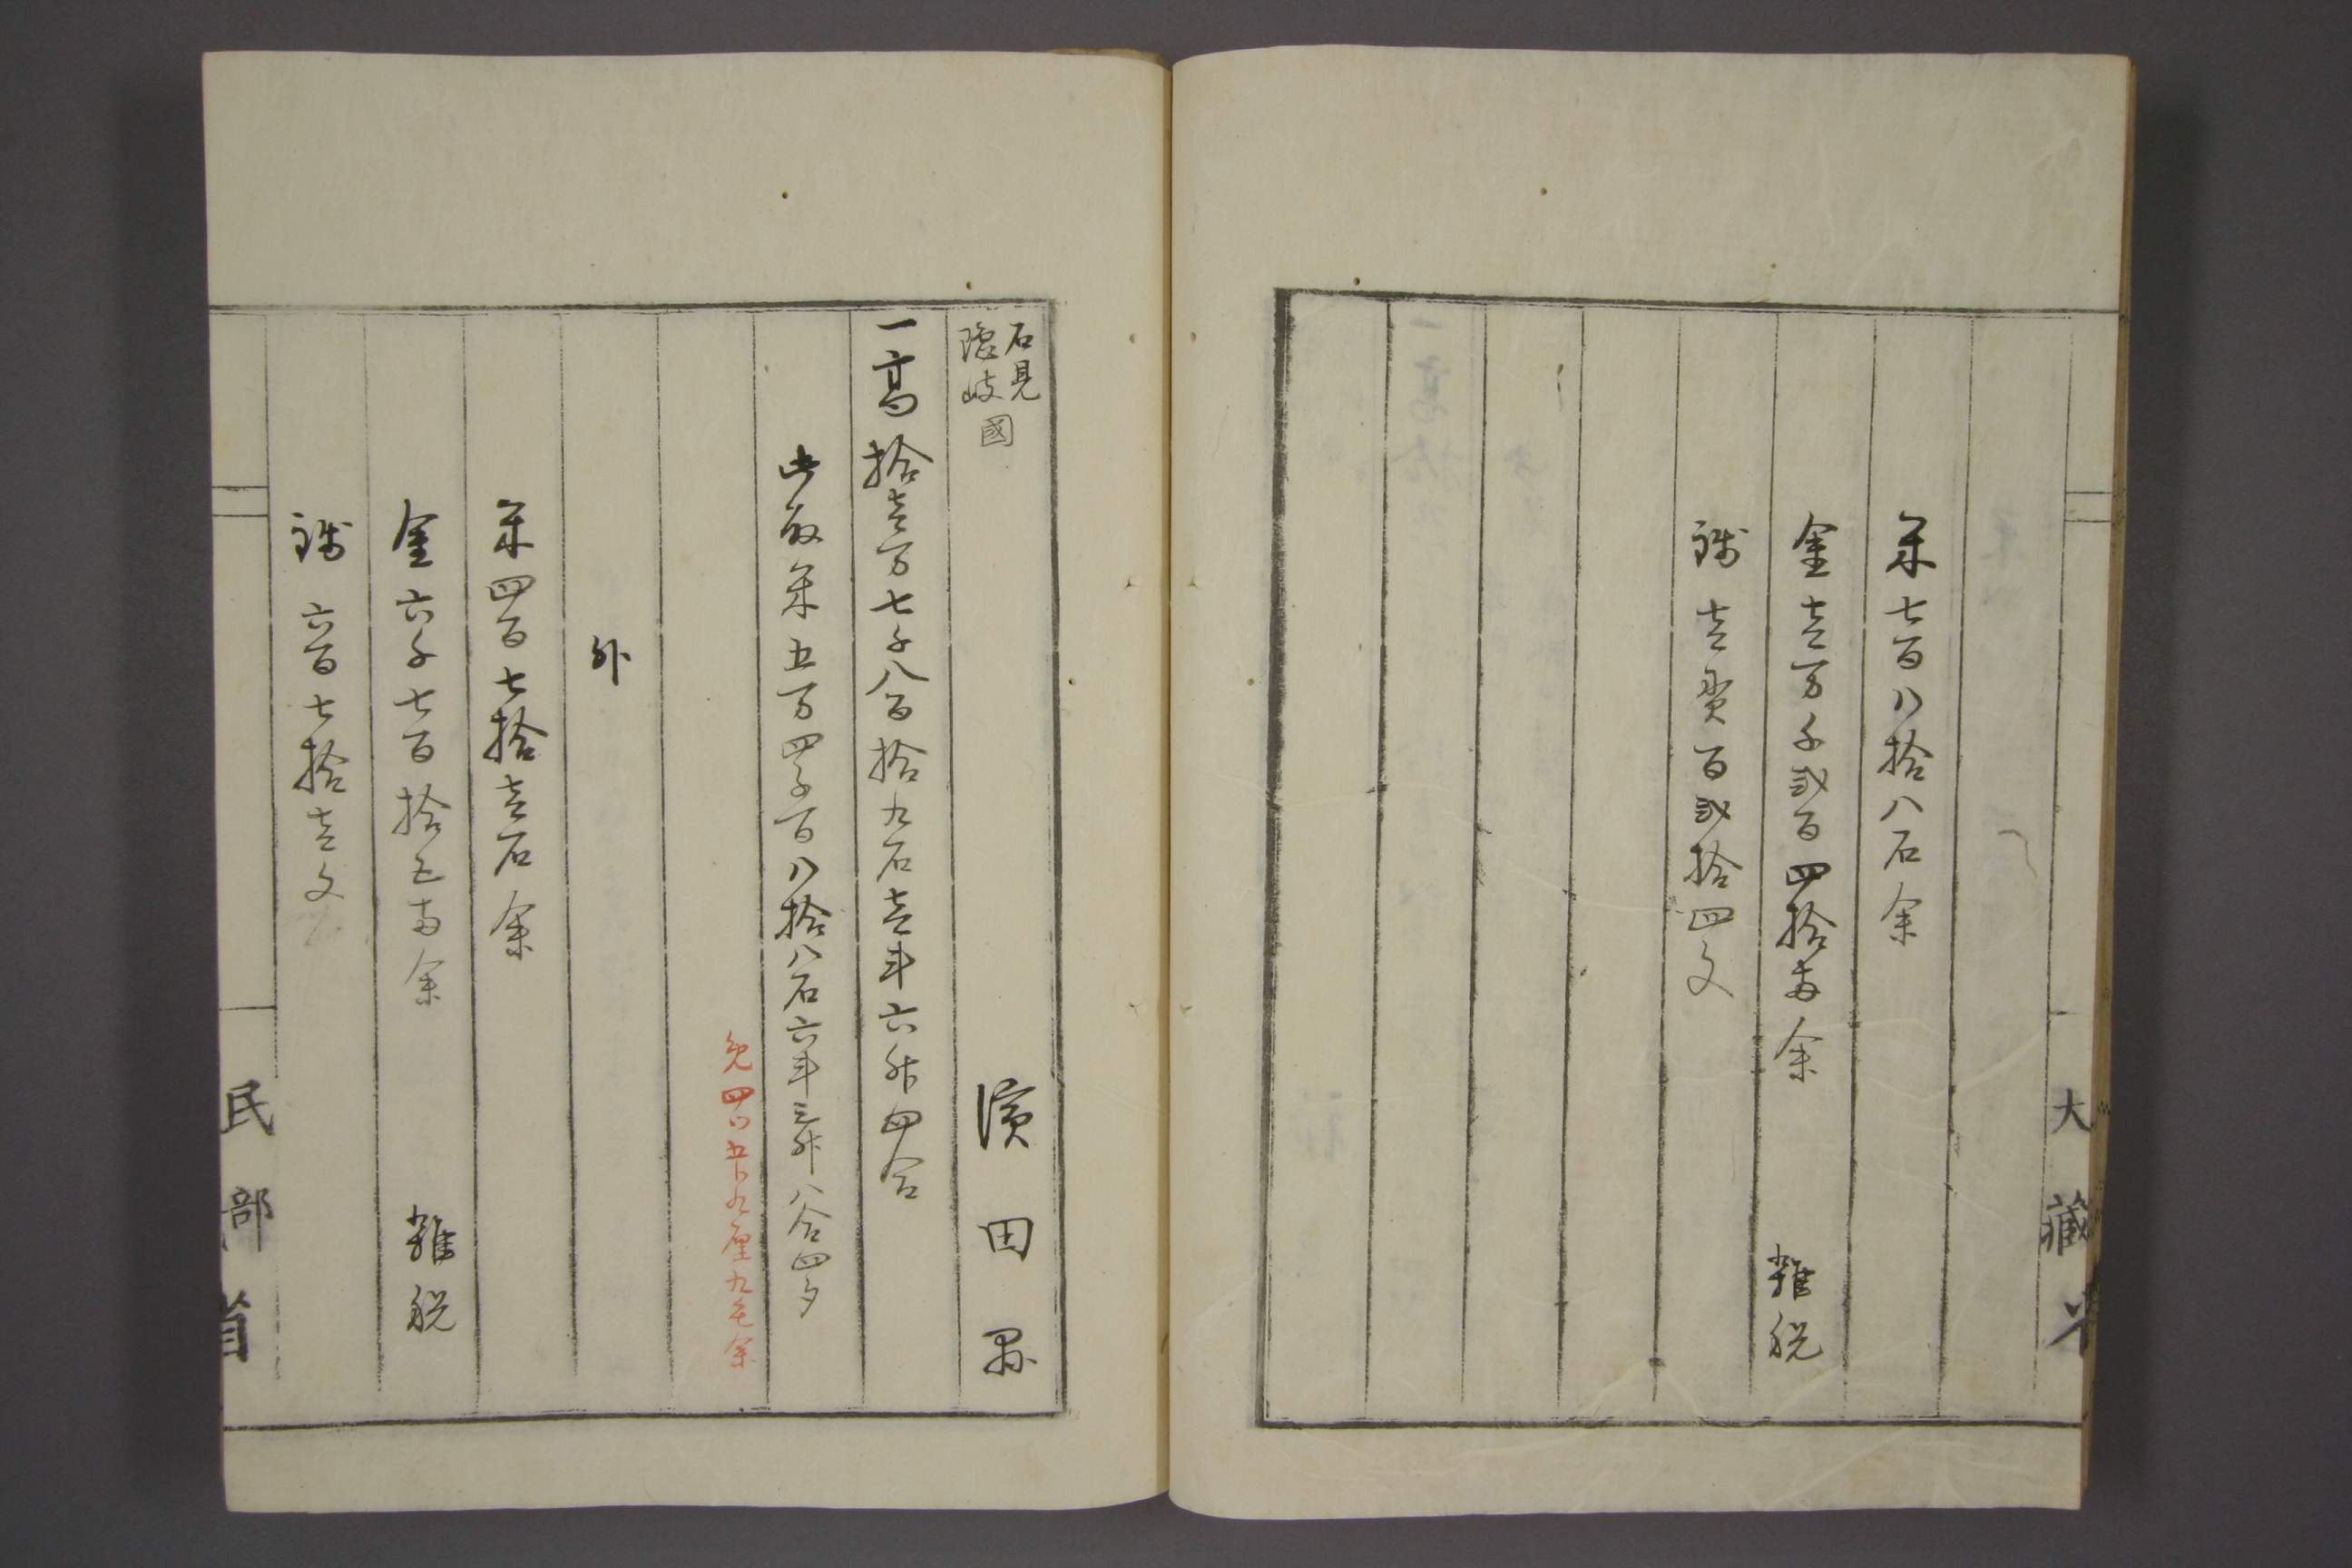 大藏省
米七百八拾八石余
金壱万千弐百四拾両余　雑税
銭壱貫百弐拾四文
石見
隠岐國　濱田県
一高拾壱万七千八百拾九石壱斗六升四合
此取米五万四千百八拾八石六斗三升八合四夕
免四ツ五分九厘九毛余
外
米四百七拾壱石余
金六千七百拾五両余　雑税
銭六百七拾壱文
民部省